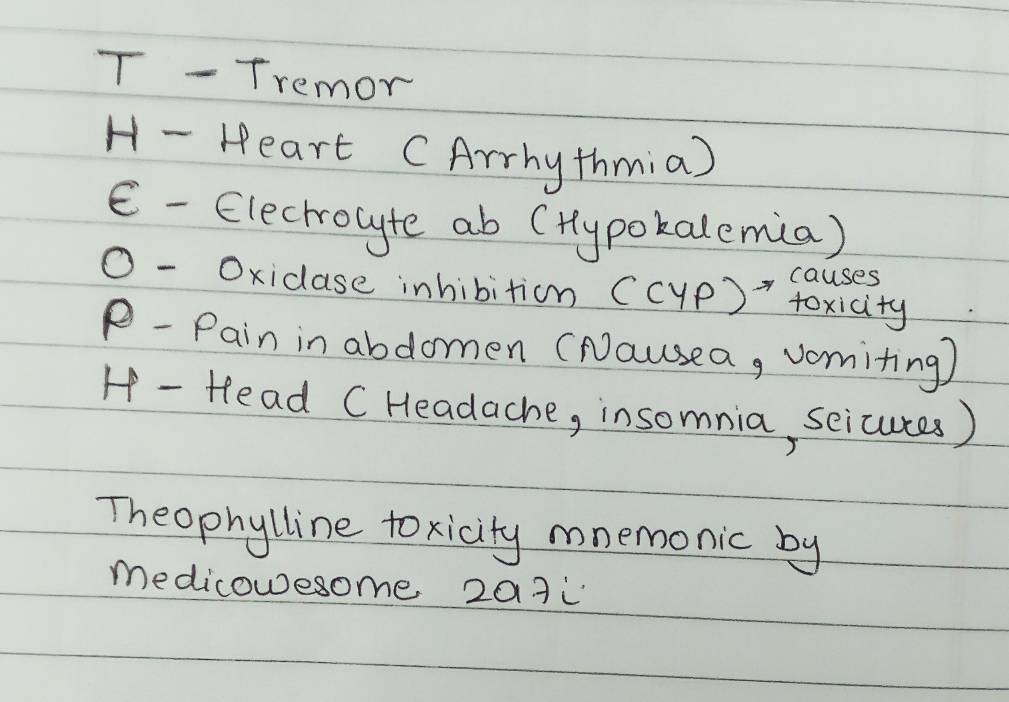 T - Tremor
H - Heart (Arrhythmia)
E - Electrolyte ab (Hypokalemia)
O - Oxidase inhibition (CYP) → causes toxicity
P - Pain in abdomen (Nausea, vomiting)
H - Head (Headache, insomnia, seizures)
Theophylline toxicity mnemonic by
medicowesome